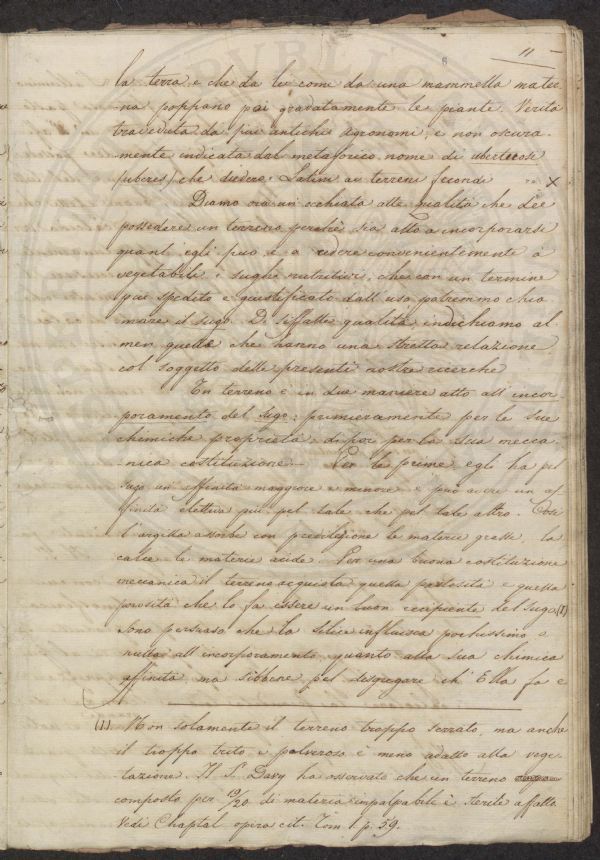 11
la terra, e che da lei come da una mammella mater-
na poppano poi gravatamente le piante. Verità
traveduta da più antichi agronomi, e non oscura-
mente indicata dal metaforico nome di ubertose
(uberes) che diedero i Latini ai terreni fecondi X
Diamo ora un occhiata alle qualità che dee
possedere un terreno perchè sia atto a incorporarsi
quanti egli può e a cedere convenientemente a'
vegetabili i sughi nutritivi, che con un termine
più spedito e giustificato dall' uso potremmo chia
mare il sugo. Di siffatte qualità indichiamo al
men quelle che hanno una stretta relazione
col soggetto delle presenti nostre ricerche
Un terreno è in due maniere atto all' incor-
poramento del sugo: primieramente per le sue
chimiche proprietà, di poi per la sua mecca-
nica costituzione — Per le prime egli ha pel
sugo un affinità maggiore o minore e può avere un af-
finità elettiva più pel tale che pel tale altro. Così
l'argilla assorbe con predilezione le materie grasse, la
calce le materie acide. Per una buona costituzione
meccanica il terreno acquista quella e quella
porosità che lo fa essere un buon recipiente del sugo (1)
Sono persuaso che la Silice influisca pochissimo o
nulla all' incorporamento quanto alla sua chimica
affinità, ma sibbene pel disgregare ch' Ella fa e
(1) Non solamente il terreno troppo serrato, ma anche
il troppo trito e polveroso è meno adatto alla vege-
tazione. Il S. Davy ha osservato che un terreno
composto per 19/20 di materia impalpabile è sterile affatto
Vedi Chaptal opera cit. Tom. 1. p. 59.